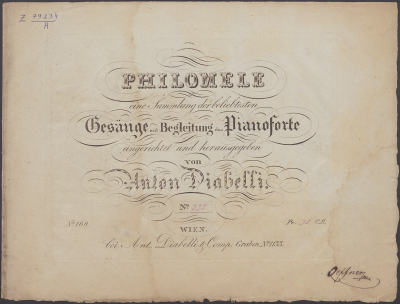 Z 79434
A
PHILOMELE
eine Sammlung der beliebtesten
Gesänge mit Begleitung des Pianoforte
eingerichtet und herausgegeben
von
Anton Diabelli.
No
No. 160. Pr. C.M.
WIEN,
bei Ant. Diabelli & Comp. Graben No. 1133.